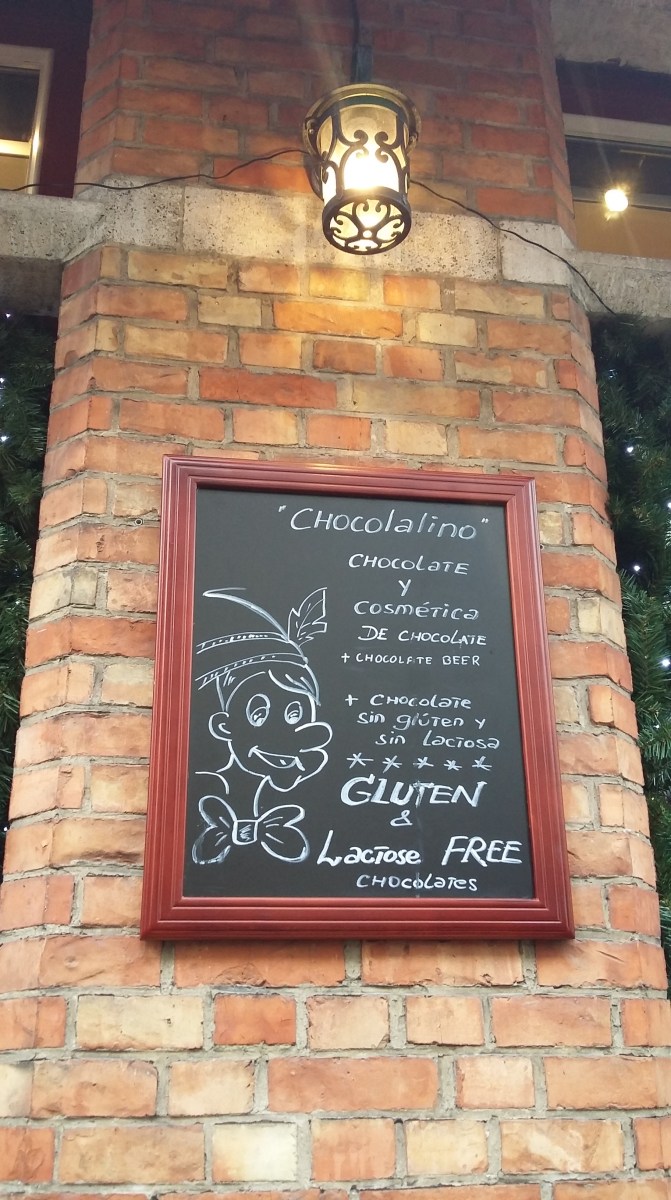 "CHOCOLATINO"
CHOCOLATE
Y
COSMÉTICA
DE CHOCOLATE
+ CHOCOLATE BEER
+ CHOCOLATE
sin glúten y
sin LACTOSA
* * * * *
GLUTEN
&
LACTOSE FREE
CHOCOLATES